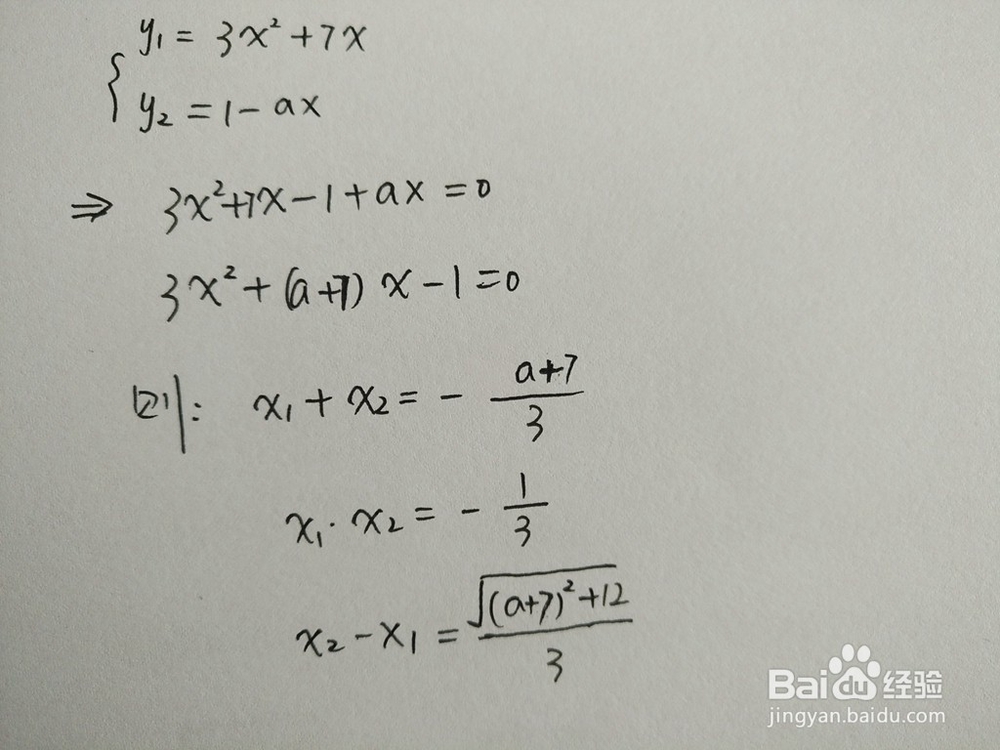 y₁ = 3x² + 7x
y₂ = 1 - ax
⇒ 3x² + 7x - 1 + ax = 0
3x² + (a+7) x - 1 = 0
则: x₁ + x₂ = - (a+7)/3
x₁ · x₂ = - 1/3
x₂ - x₁ = √((a+7)² + 12)/3
Baidu 经验
jingyan.baidu.com